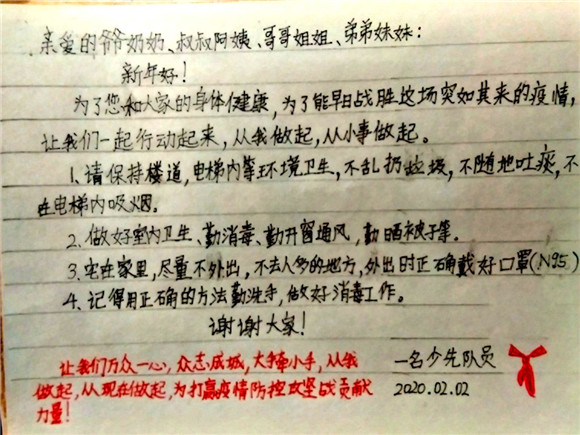 亲爱的爷爷奶奶、叔叔阿姨、哥哥姐姐、弟弟妹妹:
新年好!
为了您和大家的身体健康,为了能早日战胜这场突如其来的疫情,
让我们一起行动起来,从我做起,从小事做起。
1、请保持楼道,电梯内等环境卫生,不乱扔垃圾,不随地吐痰,不
在电梯内吸烟。
2、做好室内卫生、勤消毒、勤开窗通风,勤晒被子等。
3、宅在家里,尽量不外出,不去人多的地方,外出时正确戴好口罩(N95)
4、记得用正确的方法勤洗手,做好消毒工作。
谢谢大家!
让我们万众一心,众志成城,大手牵小手,从我
做起,从现在做起,为打赢疫情防控攻坚战贡献
力量!
一名少先队员
2020.02.02